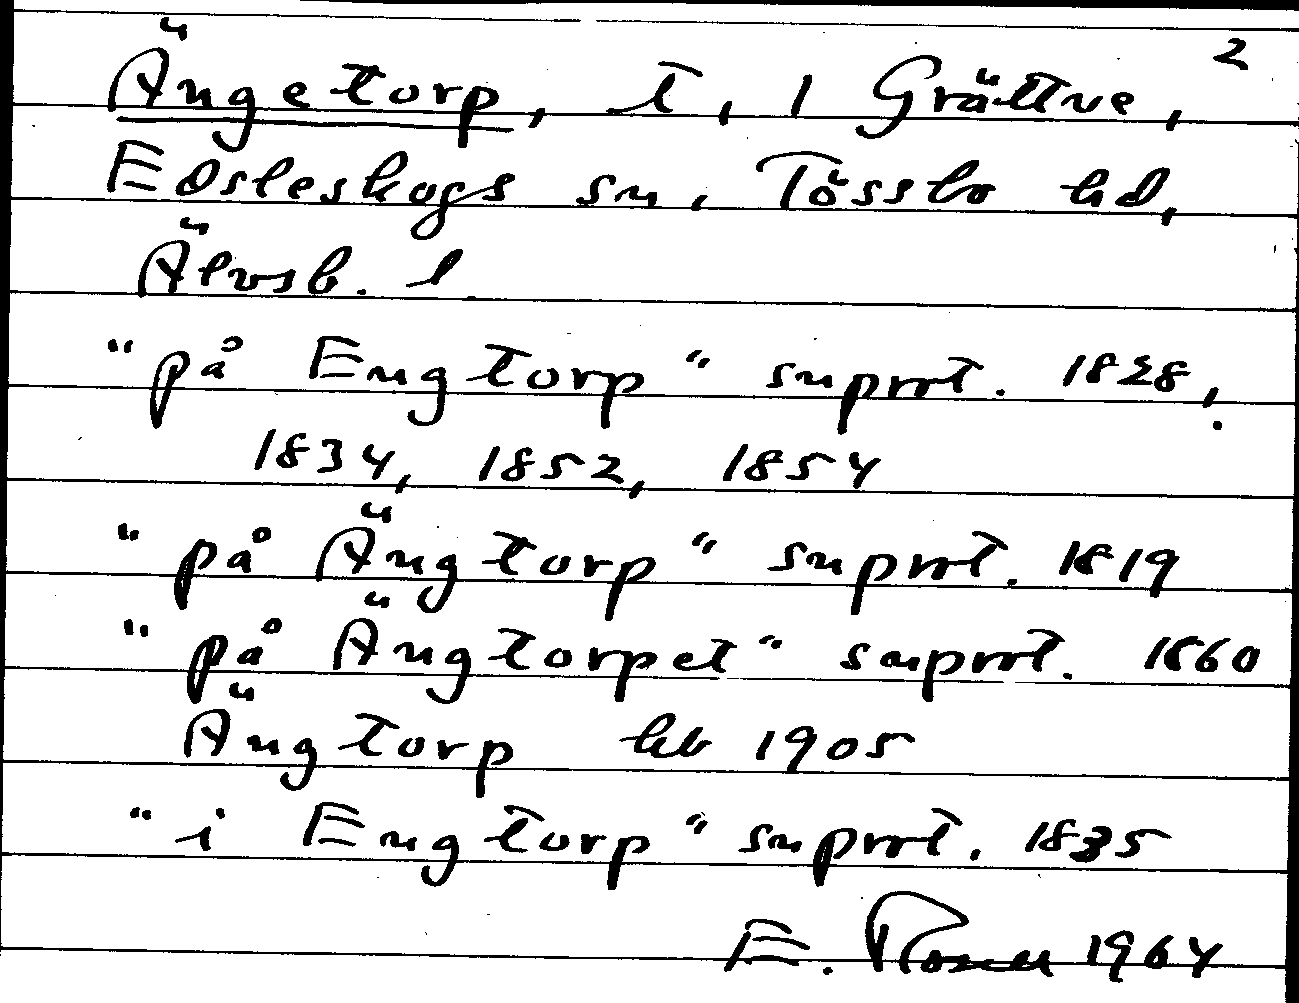 2
Ängetorp, t, 1 Grättve,
Edsleskogs sn. Tössbo hd,
Älvsb. l
"på Engtorp" snprot. 1828,
1834, 1852, 1854
"på Ängtorp" snprot. 1819
"på Ängtorpet" snprot. 1860
Ängtorp hb 1905
"i Engtorp" snprot. 1835
E. Rosell 1964